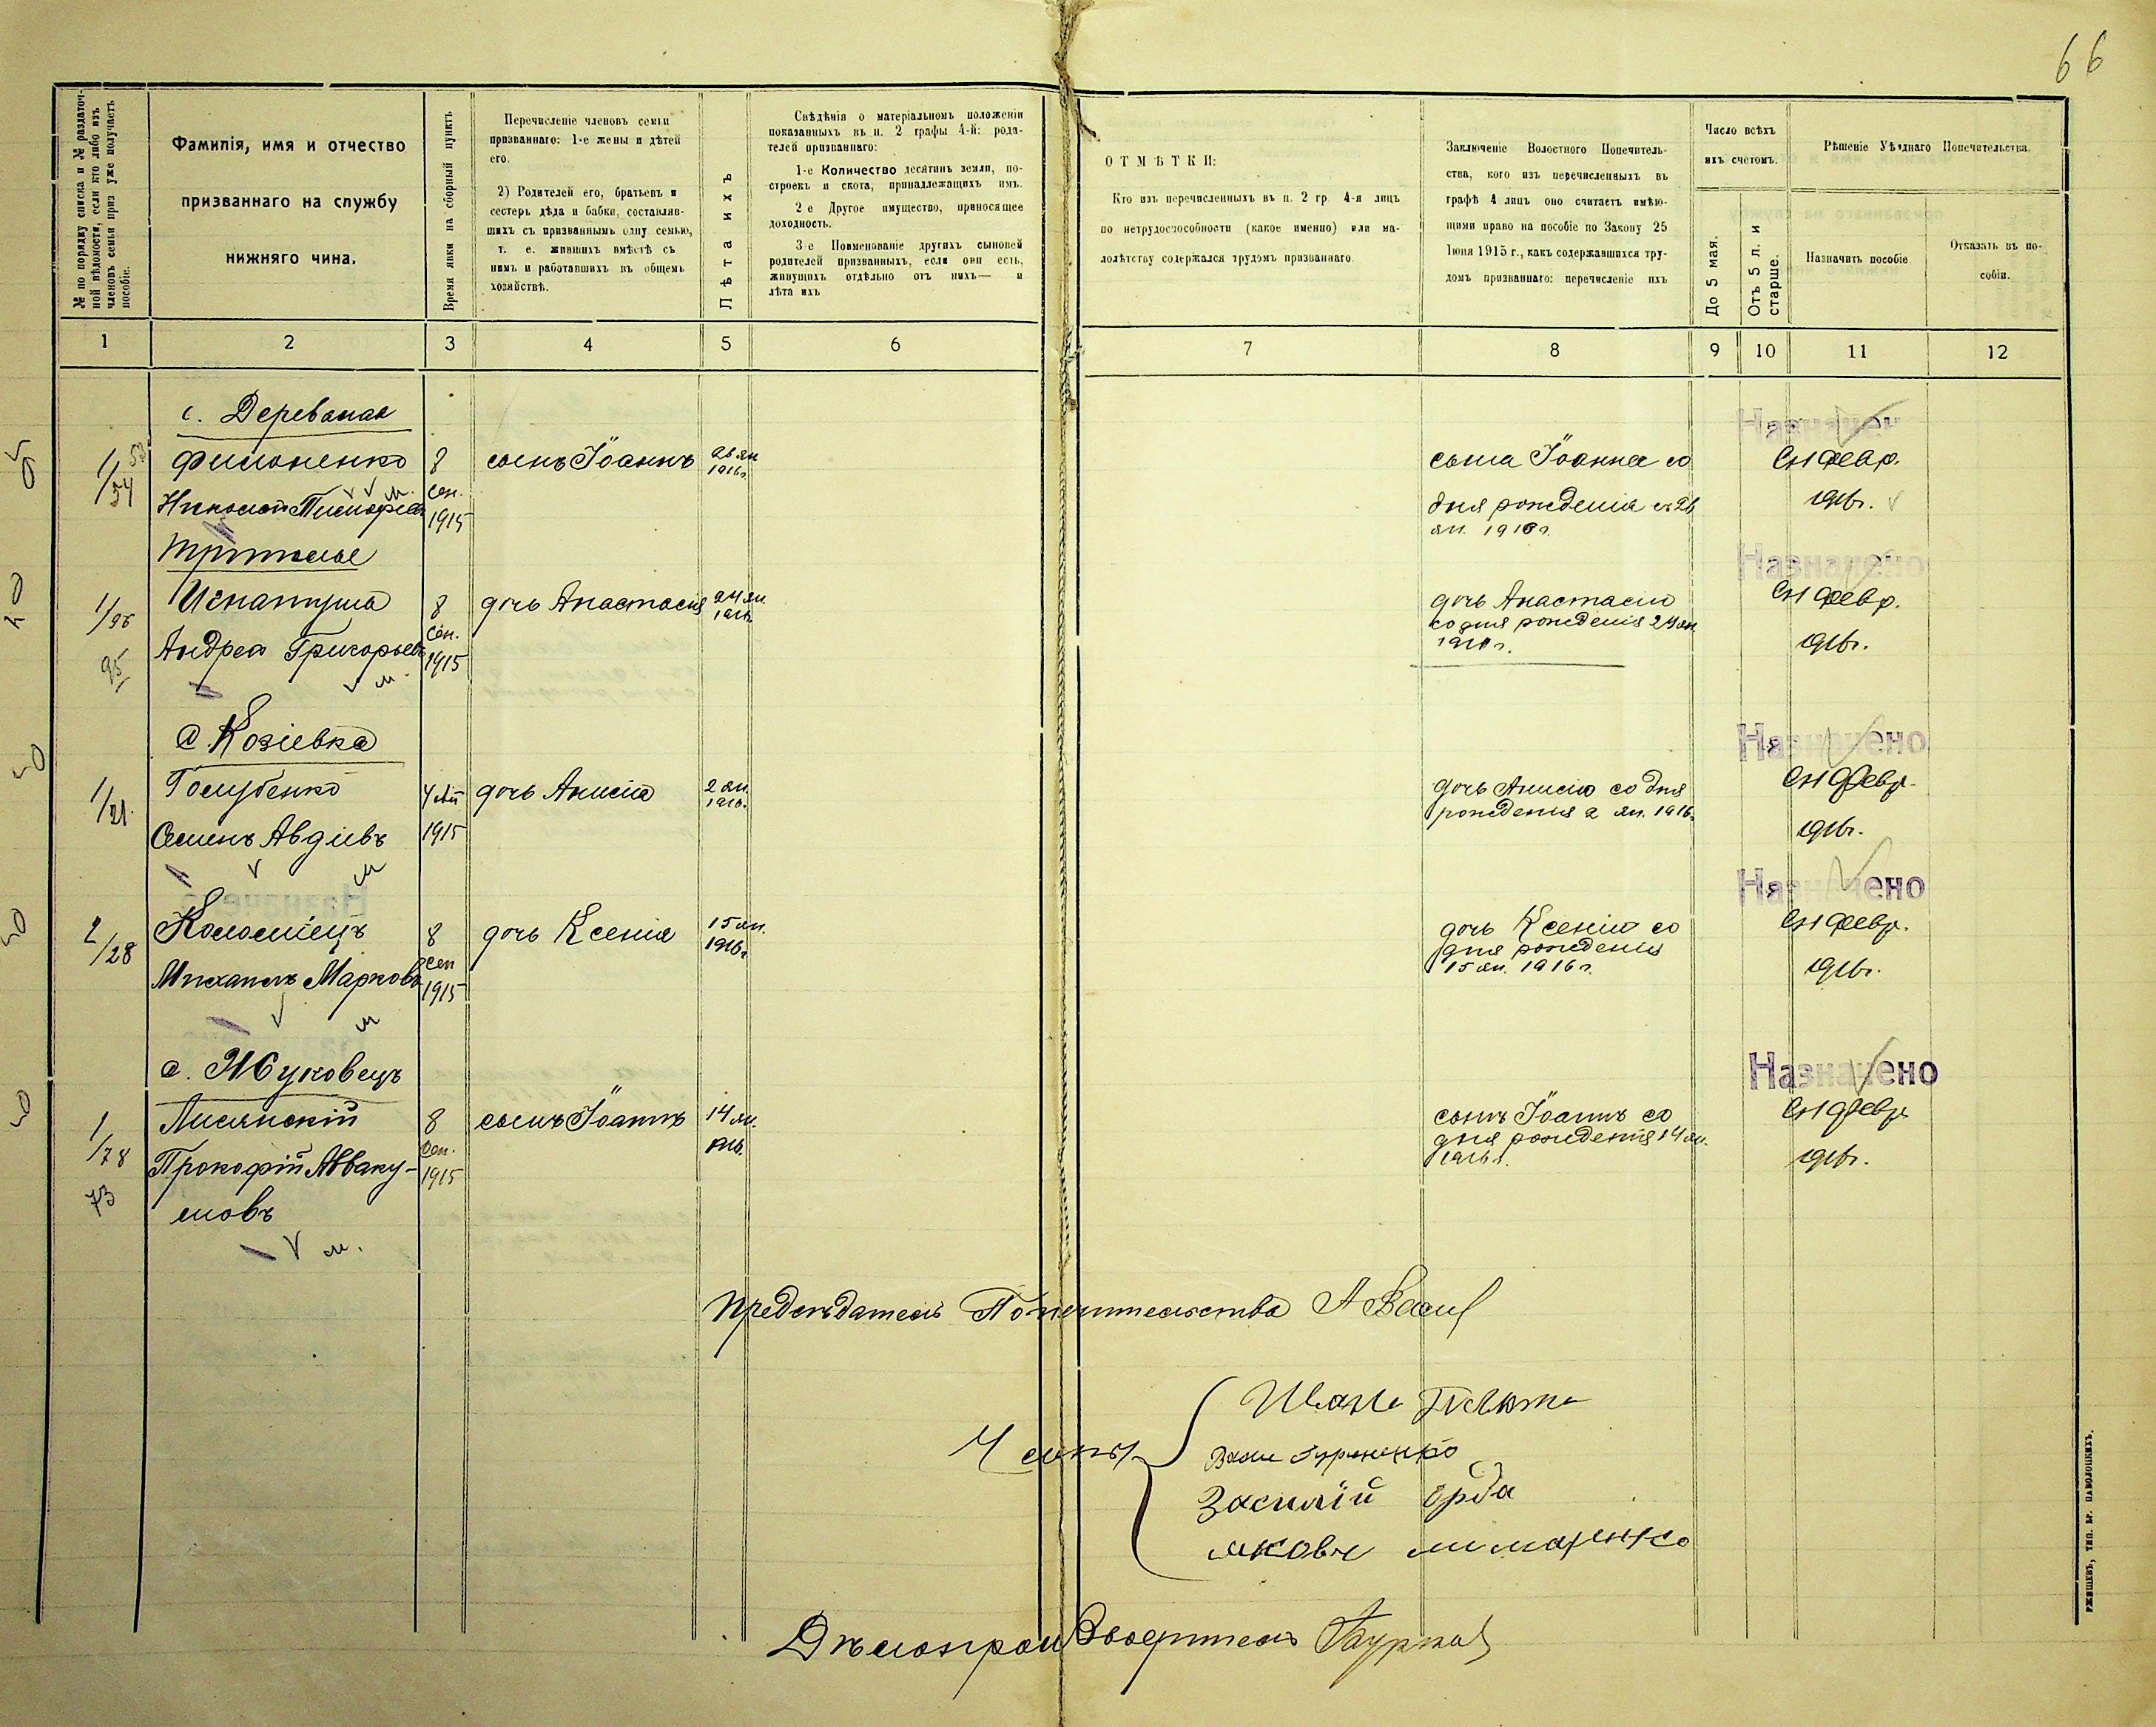 66
№ по порядку списка и № раздаточ-
ной вѣдомости, если кто либо изъ
членовъ семьи приз уже получаетъ
пособіе.
Фамилія, имя и отчество
призваннаго на службу
нижняго чина.
Время явки на сборный пунктъ
Перечисленіе членовъ семьи
призваннаго: 1-е жены и дѣтей
его.
2) Родителей его, братьевъ и
сестеръ дѣда и бабки, составляв-
шихъ съ призваннымъ одну семью,
т. е. жившихъ вмѣстѣ съ
нимъ и работавшихъ въ общемъ
хозяйствѣ.
Лѣта ихъ
Свѣдѣнія о матеріальномъ положеніи
показанныхъ въ п. 2 графы 4-й: роди-
телей призваннаго:
1-е Количество десятинъ земли, по-
строекъ и скота, принадлежащихъ имъ.
2 е Другое имущество, приносящее
доходность.
3-е Поименованіе другихъ сыновей
родителей призванныхъ, если они есть,
живущихъ отдѣльно отъ нихъ— и
лѣта ихъ
ОТМѢТКИ:
Кто изъ перечисленныхъ въ п. 2 гр. 4-я лицъ
по нетрудоспособности (какое именно) или ма-
лолѣтству содержался трудомъ призваннаго.
Заключеніе Волостного Попечитель-
ства, кого изъ перечисленныхъ въ
графѣ 4 лицъ оно считаетъ имѣю-
щими право на пособіе по Закону 25
Іюня 1915 г., какъ содержавшихся тру-
домъ призваннаго: перечисленіе ихъ
Число всѣхъ
ихъ счетомъ.
До 5 мая.
Отъ 5 л. и
старше.
Рѣшеніе Уѣзднаго Попечительства.
Назначить пособіе
Отказать въ по-
собіи.
1 2 3 4 5 6 7 8 9 10 11 12
с. Деревяная
Назначен
50 1/54 53 Филоненко 8 сынъ Іоаннъ 26 ян сына Іоанна со Съ 1 февр.
Николай Тимофеев сен. 1915 1916г. дня рожденія съ 26 1916г.
ян. 1916 г.
Трипилье
Назначено
50 1/96 Игнатуша 8 дочь Анастасія 24 ян. дочь Анастасію Съ 1 февр.
95 Андрей Григорьевъ сен. 1915 1916г. со дня рожденія 24 ян. 1916г.
1916 г.
с. Козіевка
Назначено
50 1/21. Голубенко 4 дочь Анисія 2 ян. дочь Анисію со дня Съ 1 февр.
Семенъ Авдіевъ 1915 1916г. рожденія 2 ян. 1916г. 1916г.
Назначено
50 2/28 Коломіецъ 8 дочь Ксенія 15 ян. дочь Ксенію со Съ 1 февр.
Михаилъ Марковъ сен 1915 1916г. дня рожденія 1916г.
15 ян. 1916 г.
с. Жуковецъ
Назначено
50 1/78 Лисянскій 8 сынъ Іоаннъ 14 ян. сынъ Іоаннъ со Съ 1 февр.
73 Прокофій Авваку- сен. 1915 1916. дня рожденія 14 ян. 1916г.
мовъ 1916 г.
Предсѣдатель Попечительства А
Члены
Василій Орда
яковъ
Дѣлопроизводитель
РЖИЩЕВЪ, ТИП. БР. ПАВОЛОЦКИХЪ.